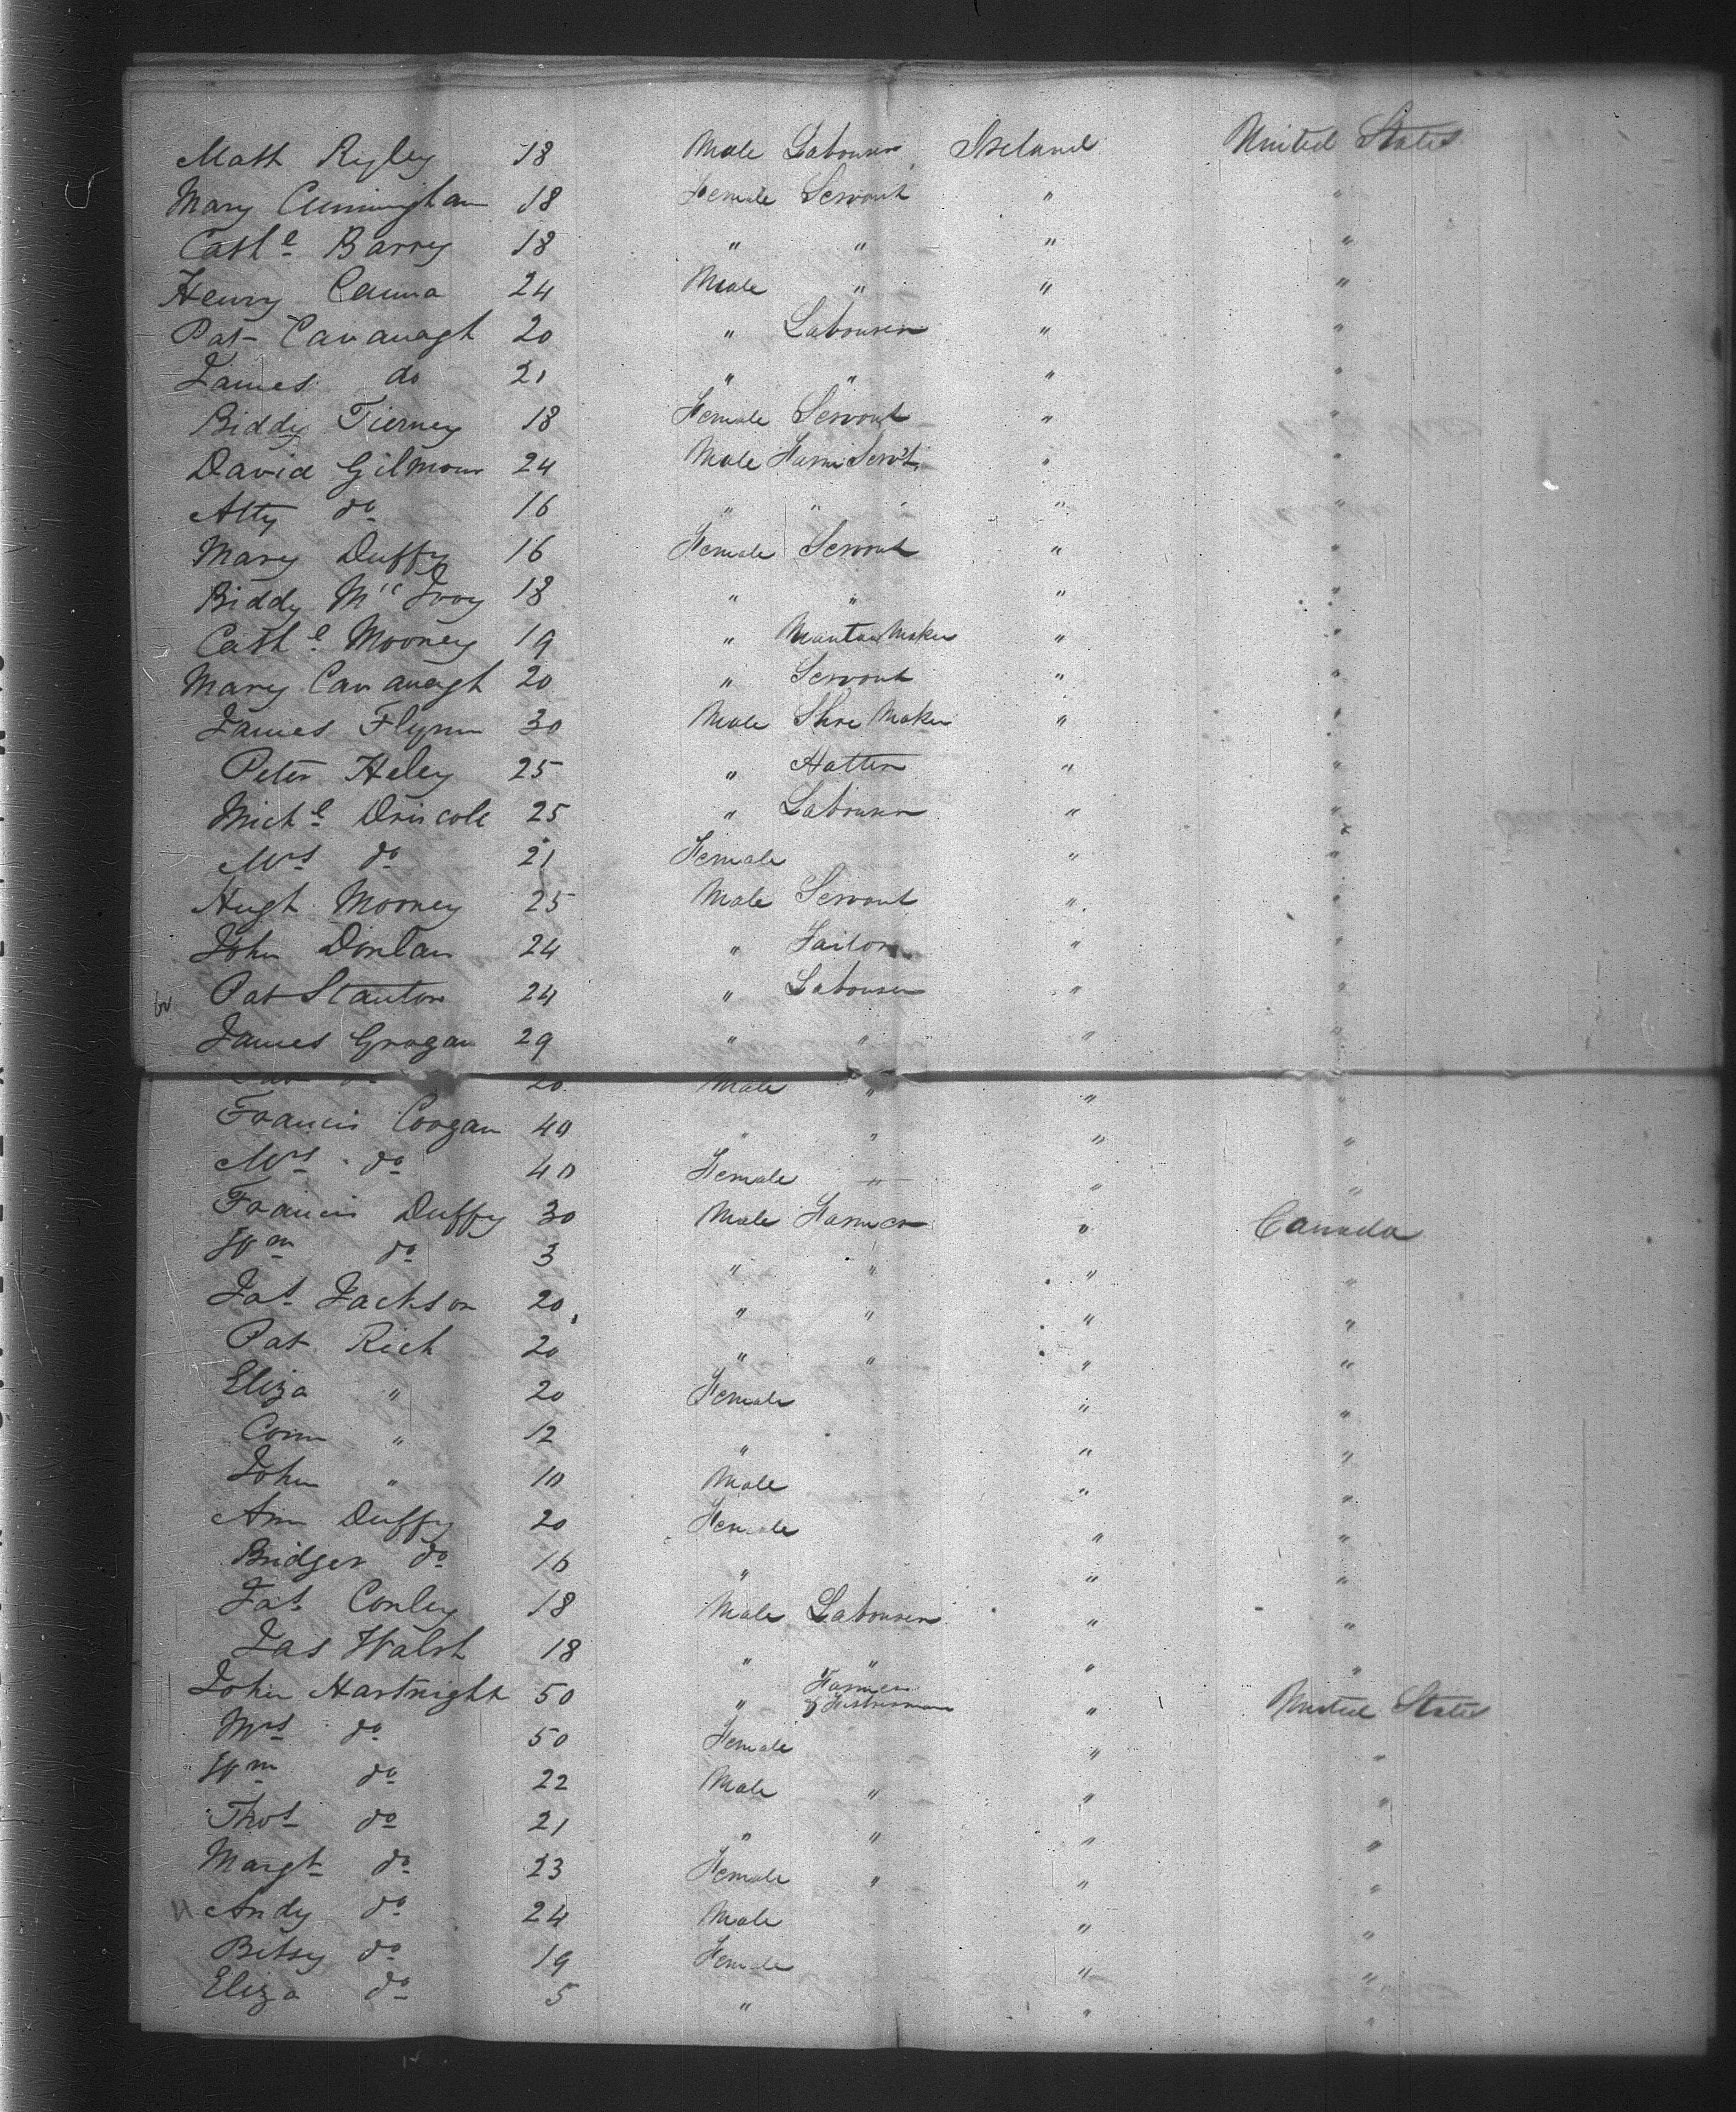 Math Rigley 18 Male Labourer Ireland United States
Mary Cunningham 18 Female Servant " "
Cathe Barry 18 " " " "
Henry Canna 24 Male " " "
Pat Cavanagh 20 " Labourer " "
James do 21 " " " "
Biddy Tierney 18 Female Servant " "
David Gilmour 24 Male Farm Servt " "
Atty do 16 " " " "
Mary Duffy 16 Female Servant " "
Biddy McIvoy 18 " " " "
Cathe Mooney 19 " Mantau Maker " "
Mary Cavanagh 20 " Servant " "
James Flynn 30 Male Shoe Maker " "
Peter Heley 25 " Hatter " "
Miche Driscole 25 " Labourer " "
Mrs do 21 Female " "
Hugh Mooney 25 Male Servant " "
John Donlan 24 " Tailor " "
Pat Stanton 24 " Labourer " "
James Grogan 29 " " " "
do 20 Male " " "
Francis Coogan 40 " " " "
Mrs do 40 Female " " "
Francis Duffy 30 Male Farmer " Canada
Wm do 3 " " " "
Jas Jackson 20 " " " "
Pat Rich 20 " " " "
Eliza " 20 Female " "
Conn " 12 " " "
John " 10 Male " "
Ann Duffy 20 Female " "
Bridget do 16 " " "
Jas Conley 18 Male Labourer " "
Jas Walsh 18 " " " "
John Hartnight 50 " Farmer & Fisherman " United States
Mrs do 50 Female " "
Wm do 22 Male " " "
Thos do 21 " " " "
Margt do 23 Female " " "
Andy do 24 Male " "
Betsy do 19 Female " "
Eliza do 5 " " "